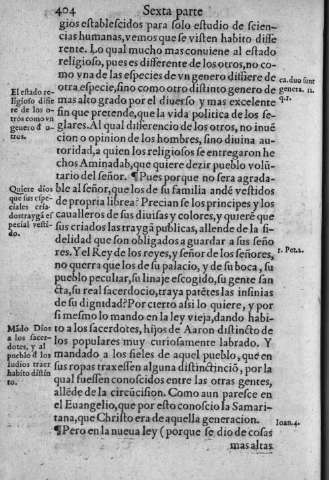 404 Sexta parte
gios establescidos para solo estudio de scien-
cias humanas, vemos que se visten habito diffe
rente. Lo qual mucho mas conuiene al estado
religioso, pues es differente de los otros, no co-
mo vna de las especies de vn genero differe de
otra especie, sino como otro distinto genero de
mas alto grado por el diuerso y mas excelente
fin que pretende, que la vida politica de los se-
glares. Al qual differencio de los otros, no inuē
cion o opinion de los hombres, sino diuina au-
toridad, a quien los religiosos se entregaron he
chos Aminadab, que quiere dezir pueblo volū
tario del señor. ¶ Pues porque no sera agrada-
ble al señor, que los de su familia andē vestidos
de propria librea? Precian se los principes y los
caualleros de sus diuisas y colores, y quierē que
sus criados las traygā publicas, allende de la fi-
delidad que son obligados a guardar a sus seño
res. Y el Rey de los reyes, y señor de los señores,
no querra que los de su palacio, y de su boca, su
pueblo peculiar, su linaje escogido, su gente san
cta, su real sacerdocio, traya patētes las insinias
de su dignidad? Por cierto assi lo quiere, y por
si mesmo lo mando en la ley vieja, dando habi-
to a los sacerdotes, hijos de Aaron distincto de
los populares muy curiosamente labrado. Y
mandado a los fieles de aquel pueblo, que en
sus ropas traxessen alguna distinctiō, por la
qual fuessen conoscidos entre las otras gentes,
allēde de la circūcision. Como aun paresce en
el Euangelio, que por esto conoscio la Samari-
tana, que Christo era de aquella generacion.
¶ Pero en la nueua ley (porque se dio de cosas
mas altas
El estado re-
ligioso diffie
re de los o-
tros como vn
genero d̄ o-
tros.
Quiere dios
que sus espe-
ciales cria-
dos traygā es
pecial vesti-
do.
Mādo Dios
a los sacer-
dotes, y al
pueblo d̄ los
Iudios traer
habito distin
to.
ca. duo sunt
genera. 12.
q. 1.
1. Pet. 2.
Ioan. 4.